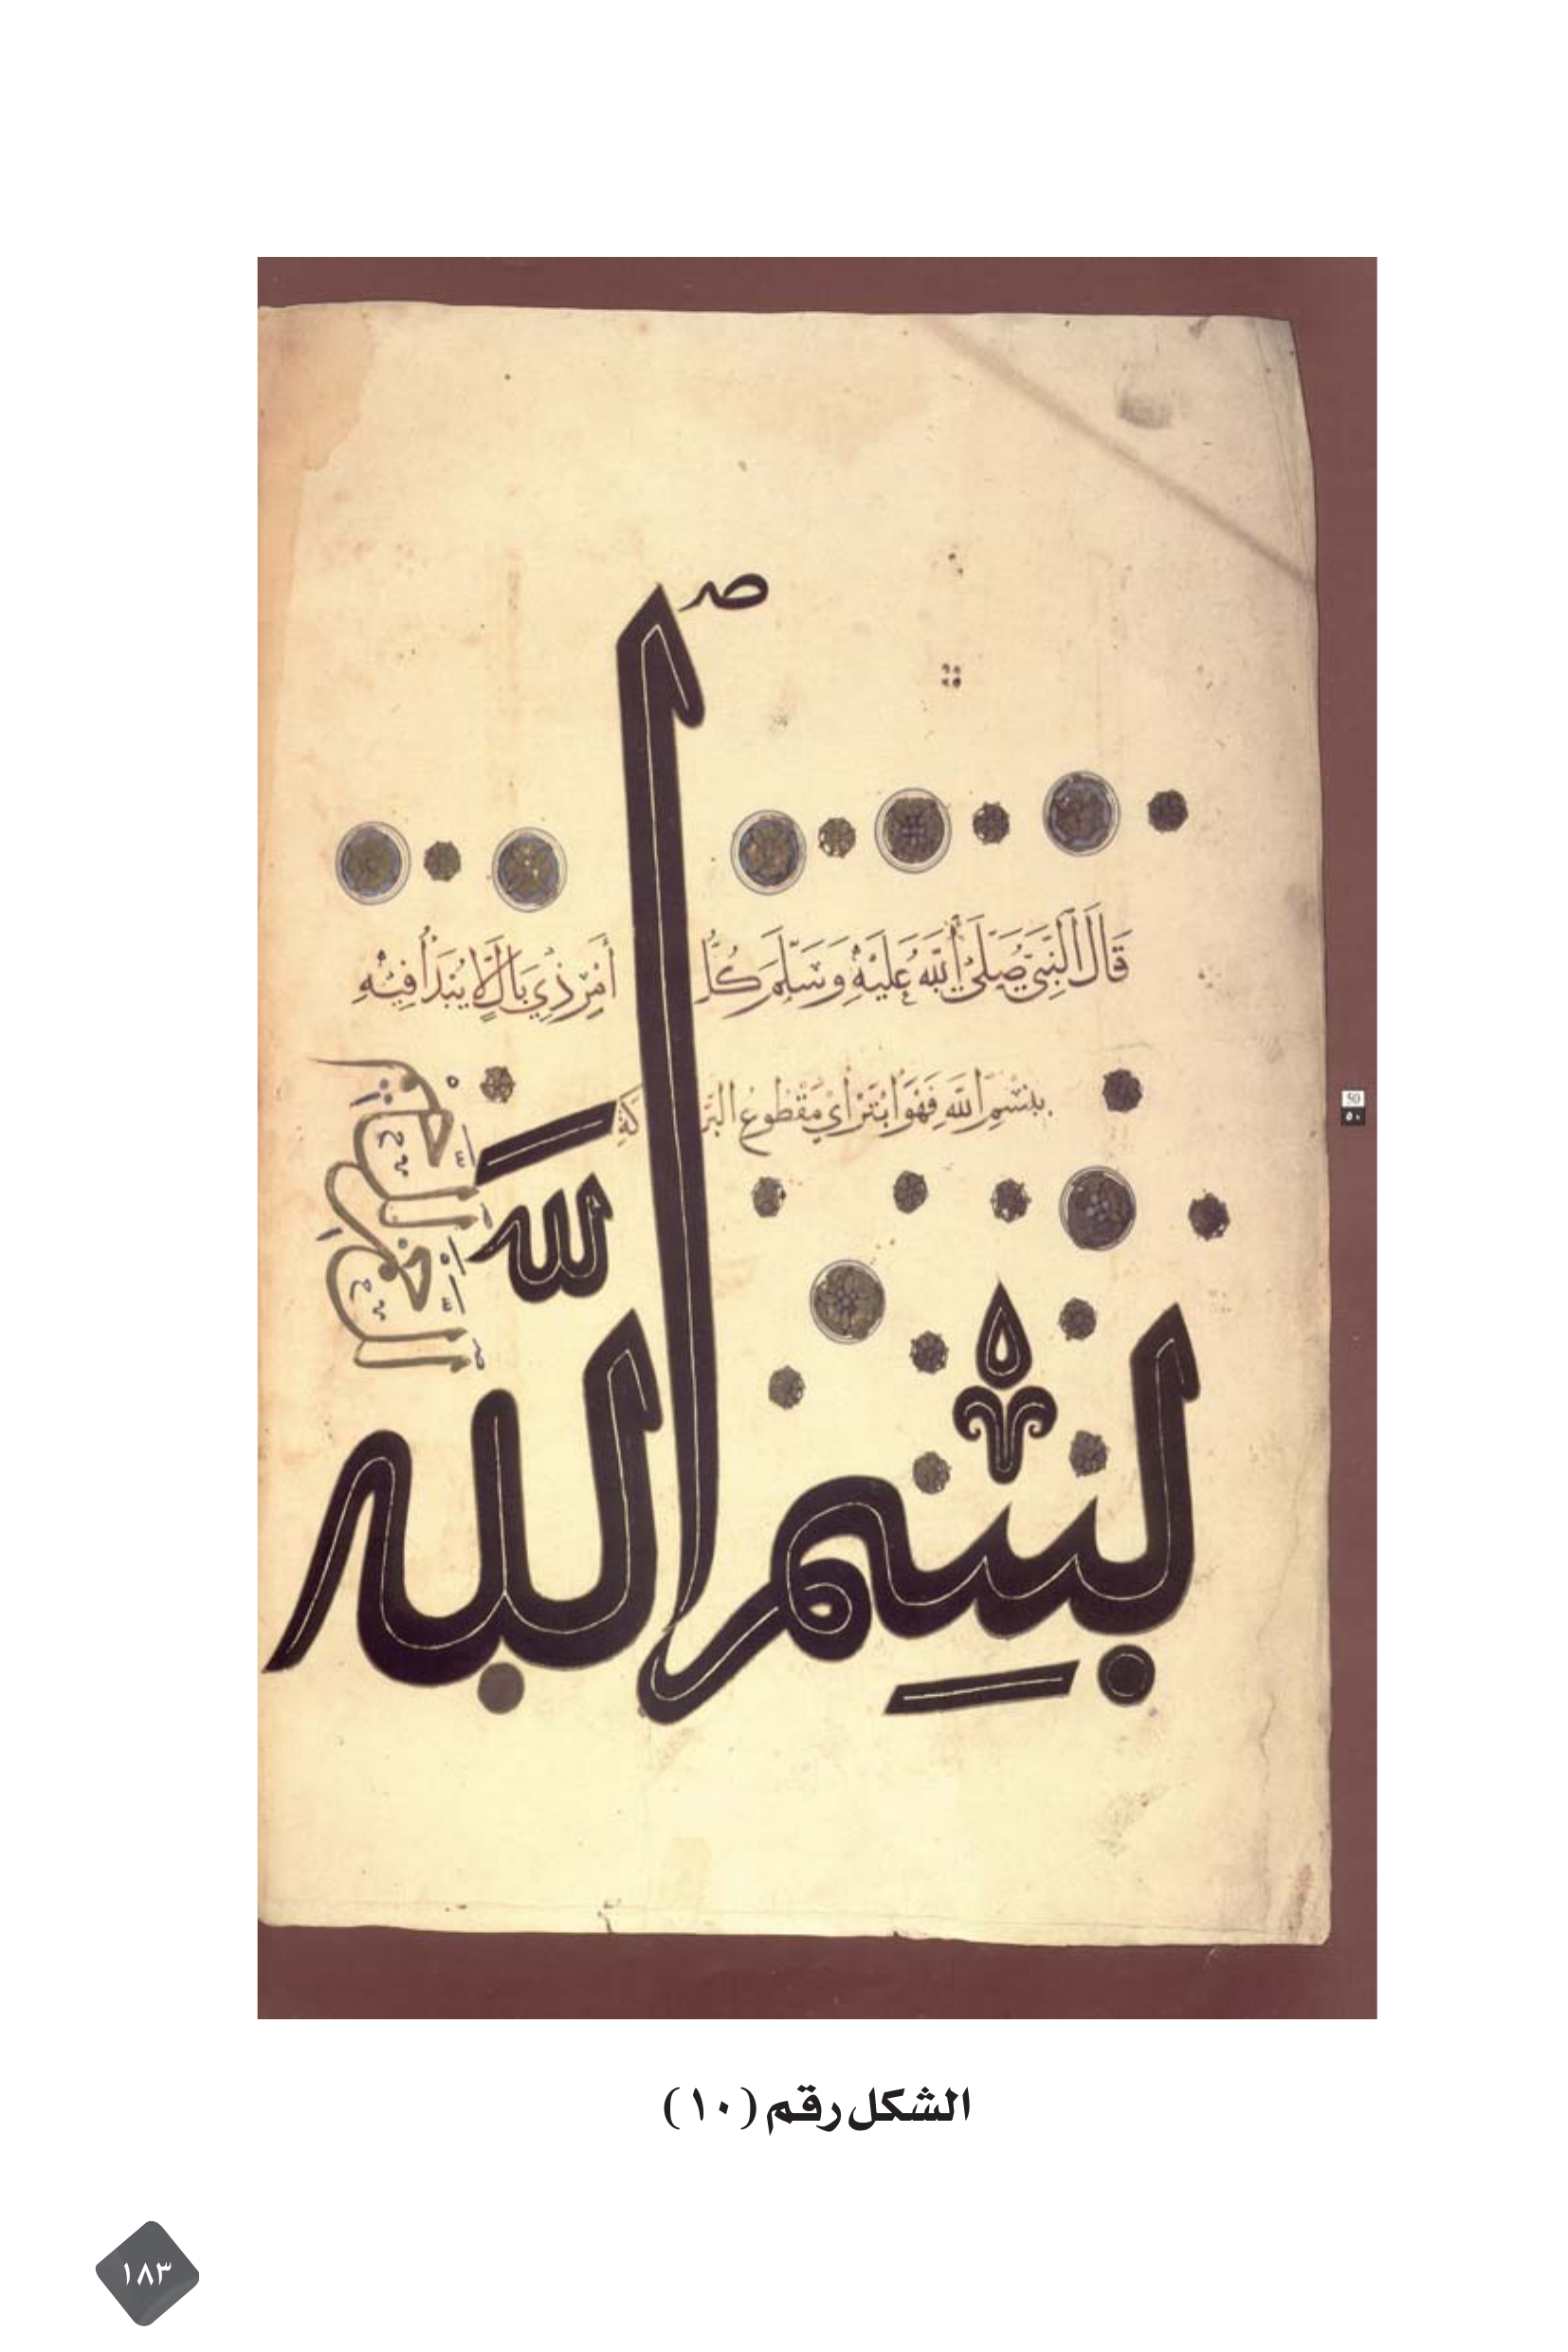 قَالَ النَّبِيُّ صَلَّى اللَّهُ عَلَيْهِ وَسَلَّمَ كُلُّ أَمْرٍ ذِي بَالٍ لَا يُبْدَأُ فِيهِ
بِبِسْمِ اللَّهِ فَهُوَ أَبْتَرُ أَيْ مَقْطُوعُ الْبَرَكَةِ
بِسْمِ اللَّهِ
الرَّحْمٰنِ الرَّحِيمِ
50
٥٠
الشكل رقم (١٠)
١٨٣